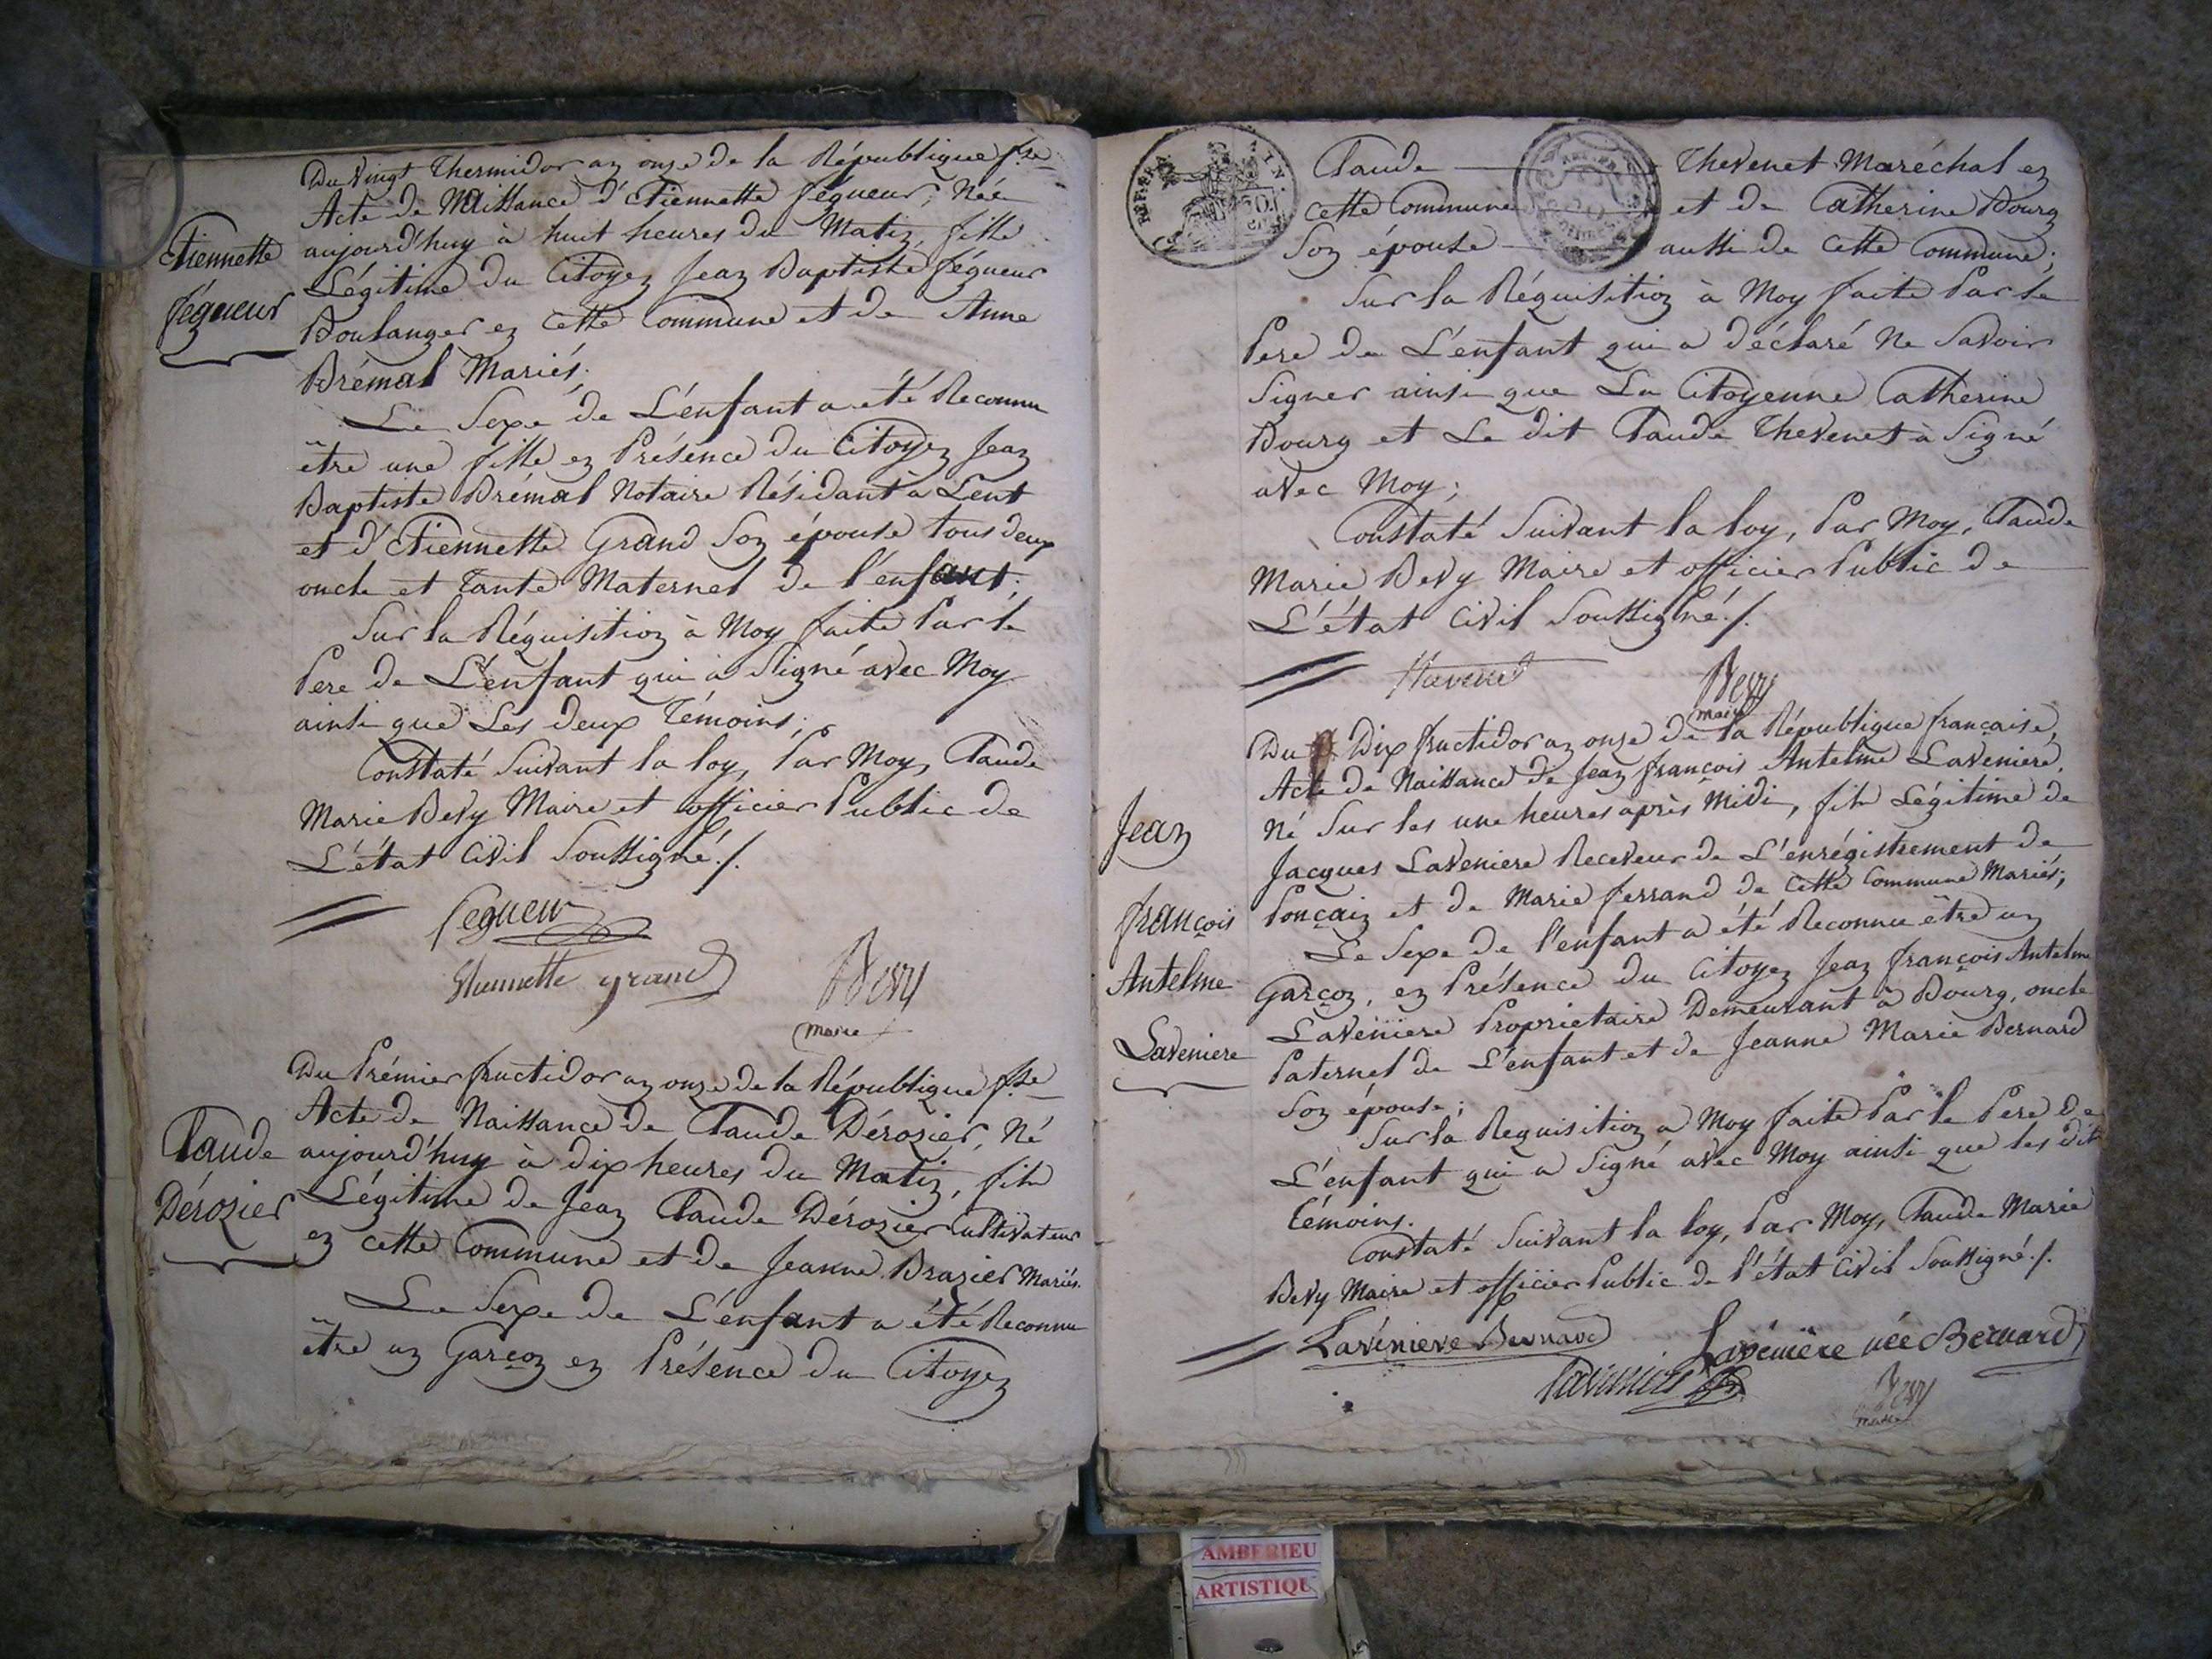 Du vingt Thermidor an onze de la République fse
Acte de Naissance d'Etiennette Fégueur, Née
Etiennette
Fégueur
aujourd'huy à huit heures du Matin, fille
Légitime du Citoyen Jean Baptiste Fégueur
Boulanger en cette Commune et de Anne
Brémal Mariés.
Le Sexe de L'enfant a été Reconnu
être une fille en Présence du Citoyen Jean
Baptiste Brémal Notaire Résidant à Lent
et d'Etiennette Grand Son épouse tous deux
oncle et Tante Maternel de l'enfant;
Sur la Réquisition à Moy faite Par le
Pere de L'enfant qui a Signé avec Moy
ainsi que Les deux Témoins;
Constaté Suivant la loy, Par Moy, Claude
Marie Bevy Maire et officier Public de
L'état Civil Soussigné./.
fegueur
Etiennette grand
Bevy
maire
Du Prémier fructidor an onze de la République fse
Acte de Naissance de Claude Dérozier, Né
Claude
Dérozier
aujourd'huy à dix heures du Matin, fils
Légitime de Jean Claude Dérozier Cultivateur
en cette Commune et de Jeanne Brazier Mariés.
Le Sexe de L'enfant a été Reconnu
être un Garçon en Présence du Citoyen
Claude Thevenet Maréchal en
cette Commune et de Catherine Bourg
Son épouse aussi de cette Commune;
Sur la Réquisition à Moy faite Par le
Pere de L'enfant qui a déclaré Ne Savoir
Signer ainsi que La Citoyenne Catherine
Bourg et Le dit Claude Thevenet à Signé
avec Moy;
Constaté Suivant la loy, Par Moy, Claude
Marie Bevy Maire et officier Public de
L'état Civil Soussigné./.
Thevenet
Bevy
maire
Du Dix fructidor an onze de la République française,
Acte de Naissance de Jean françois Antelme Laveniere,
Jean
françois
Antelme
Laveniere
Né Sur les une heures après Midi, fils Légitime de
Jacques Laveniere Receveur de L'enrégistrement de
Ponçain et de Marie ferrand de Cette Commune Mariés;
Le Sexe de l'enfant a été Reconnu être un
Garçon, en Présence du Citoyen Jean françois Antelme
Laveniere Propriétaire Demeurant à Bourg, oncle
Paternel de L'enfant et de Jeanne Marie Bernard
Son épouse;
Sur la Requisition a Moy faite Par le Pere de
L'enfant qui a Signé avec Moy ainsi que les dits
témoins.
Constaté Suivant la loy, Par Moy, Claude Marie
Bevy Maire et officier Public de l'état Civil Soussigné./.
Laveniere Bernard
Lavéniëre née Bernard
Laveniere
Bevy
maire
AMBERIEU
ARTISTIQUE